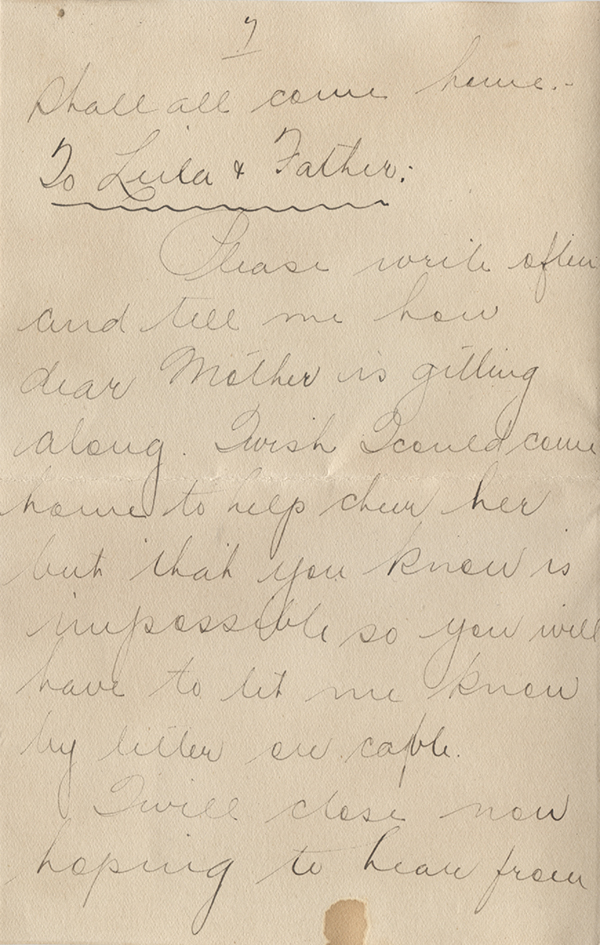 7
shall all come home.-
To Leila & Father:
Please write often
and tell me how
dear Mother is gitting
along. I wish I could come
home to help cheer her
but that you know is
impossible so you will
have to let me know
by letter or cable.
I will close now
hoping to hear from